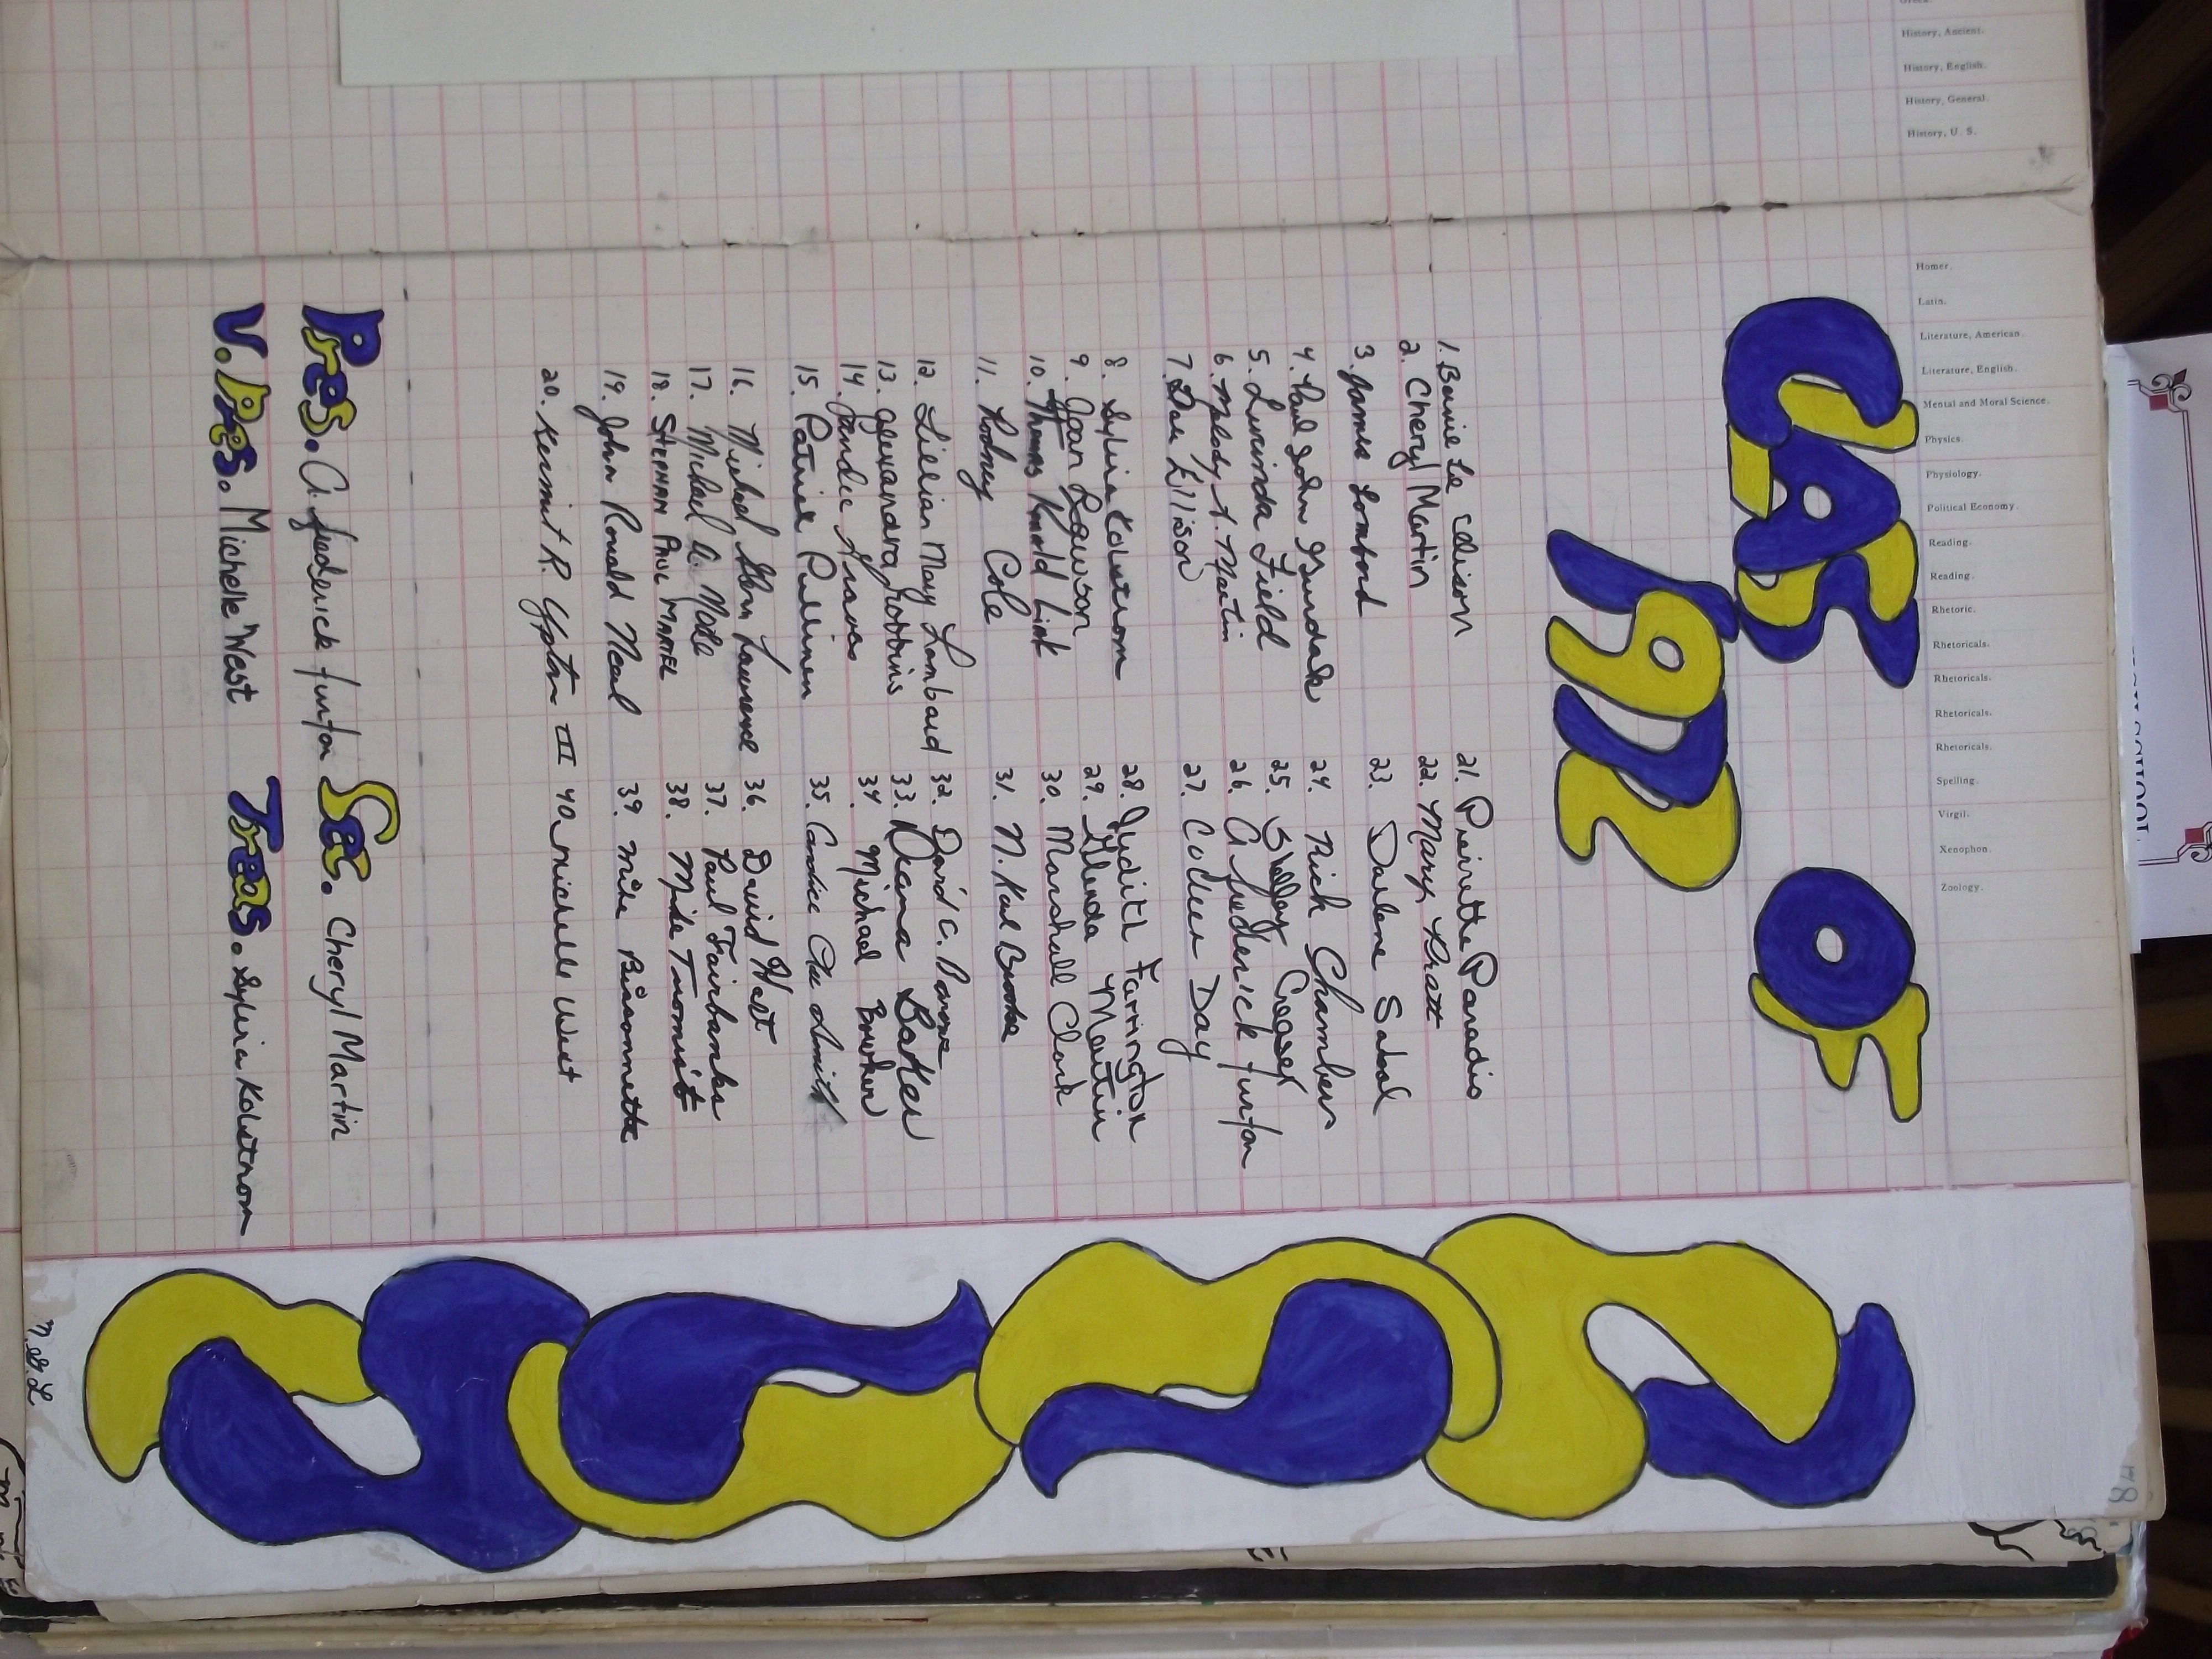 Greek.
History, Ancient.
History, English.
History, General.
History, U. S.
Homer.
Latin.
Literature, American.
Literature, English.
Mental and Moral Science.
Physics.
Physiology.
Political Economy.
Reading.
Reading.
Rhetoric.
Rhetoricals.
Rhetoricals.
Rhetoricals.
Rhetoricals.
Spelling.
Virgil.
Xenophon.
Zoology.
CLASS OF
1972
1. Bonnie Lee Edison
2. Cheryl Martin
3. James Lombard
4. Paul John
5. Lucinda Field
6. Melody A. Martin
7. Dan Ellison
8. Sylvia Kolstrom
9. Joan Lawson
10. Thomas Ronald Link
11. Rodney Cole
12. Lillian May Lombard
13. Alexandra Robbins
14. Jandie Graves
15. Patricia Pullinen
16. Michael Glenn Lawrence
17. Michael A. Noble
18. STEPHAN PAUL MARTEL
19. John Ronald Neal
20. Kermit R. Upton III
21. Pierrette Paradis
22. Mary Pratt
23. Darlene Sabool
24. Rick Chambers
25. Shelley Creaser
26. A. frederick funton
27. Colleen Day
28. Judith Farrington
29. Glenda Martin
30. Marshall Clark
31. N. Karl Brooks
32. David C.
33. Deana Barker
34. Michael Bowker
35. Candice Ann Smith
36. David Hart
37. Paul Fairbanks
38. Mike Tuomist
39. Mike Bissonnette
40. Michelle West
Pres. A. frederick funton Sec. Cheryl Martin
V. Pres. Michelle West Treas. Sylvia Kolstrom
M. G. L.
78